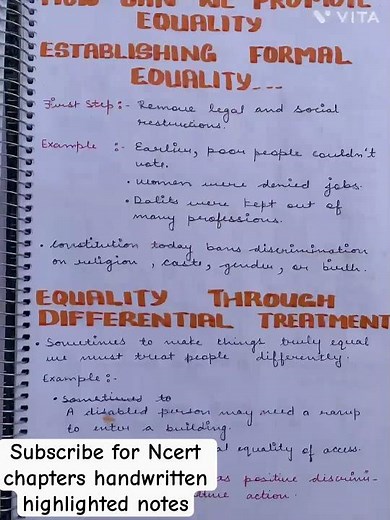 HOW CAN WE PROMOTE
VITA
EQUALITY
ESTABLISHING FORMAL
EQUALITY...
First Step:- Remove legal and social
restrictions.
Example :- Earlier, poor people couldn't
vote.
• Women were denied jobs.
• Dalits were kept out of
many professions.
• Constitution today bans discrimination
on religion, caste, gender, or birth.
EQUALITY THROUGH
DIFFERENTIAL TREATMENT
• Sometimes to make things truly equal
we must treat people differently.
Example:-
• Sometimes to
A disabled person may need a ramp
to enter a building.
equality of access.
Subscribe for Ncert
chapters handwritten
highlighted notes
as positive discrimi-
action.